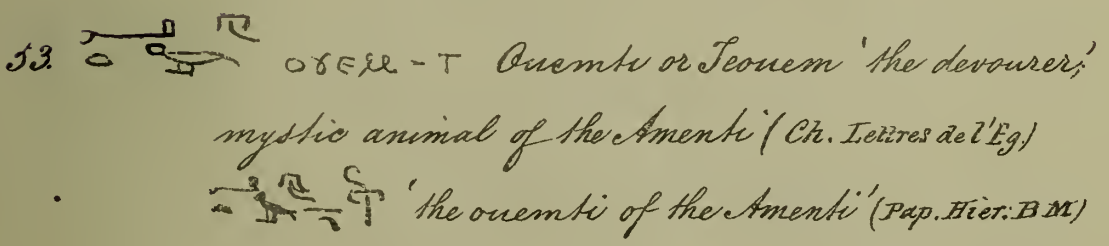 53. ⲟⲩⲉⲙ - ⲧ Ouemti or Teouem 'the devourer,'
mystic animal of the Amenti (Ch. Lettres de l'Eg.)
'the ouemti of the Amenti' (Pap. Hier. B M)